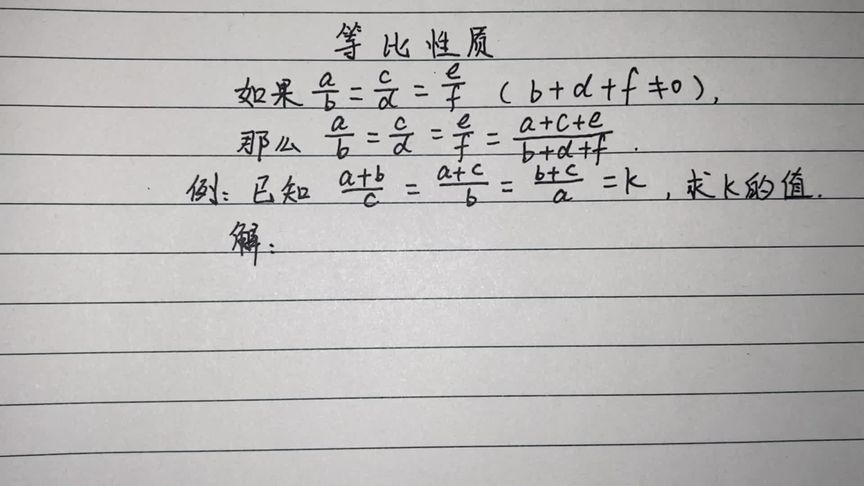 等比性质
如果 a/b = c/d = e/f (b+d+f≠0),
那么 a/b = c/d = e/f = a+c+e/b+d+f .
例: 已知 a+b/c = a+c/b = b+c/a = k , 求k的值.
解: